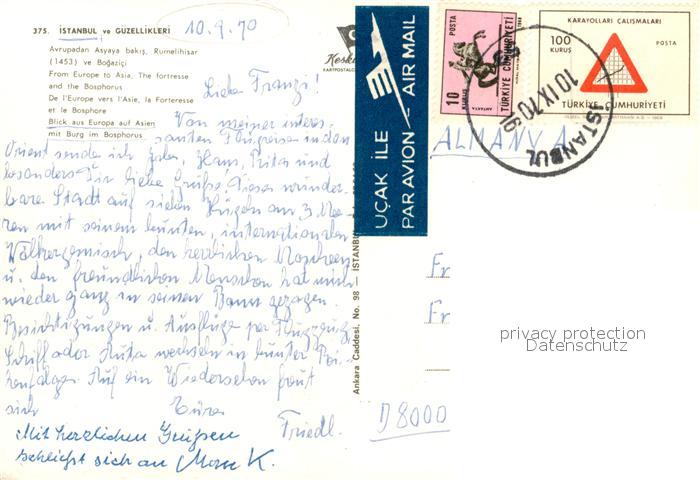 375. İSTANBUL ve GÜZELLİKLERİ 10.9.70
Avrupadan Asyaya bakış, Rumelihisar
(1453) ve Boğaziçi
From Europe to Asia, The fortresse
and the Bosphorus
De l'Europe vers l'Asie, la Forteresse
et le Bosphore
Blick aus Europa auf Asien
mit Burg im Bosphorus
Keski
KARTPOSTALC
Liebe Franzi!
Von meiner interes-
santen Flugreise in den
Orient sende ich Euch, Hans, Rita und
besonders Dir liebe Grüße! Diese wunder-
bare Stadt auf sieben Hügeln am 3 Mee-
ren mit seinem bunten, internationalen
Völkergemisch, den herrlichen Moscheen
u. den freundlichen Menschen hat mich
wieder ganz in seinen Bann gezogen.
Besichtigungen u. Ausflüge per Flugzeug,
Schiff oder Auto wechseln in bunter Rei-
henfolge. Auf ein Wiedersehen freut
sich Eure
Friedl.
Mit herzlichen Grüßen
schließt sich an K.
Ankara Caddesi, No. 98 — İSTANBUL
UÇAK İLE
PAR AVION AIR MAIL
POSTA
10
KURUŞ
TÜRKİYE CUMHURİYETİ
KARAYOLLARI ÇALIŞMALARI
100
KURUŞ
POSTA
TÜRKİYE CUMHURİYETİ
10 IX 70 16
İSTANBUL
ALMANYA
Fr
Fr
D 8000
privacy protection
Datenschutz